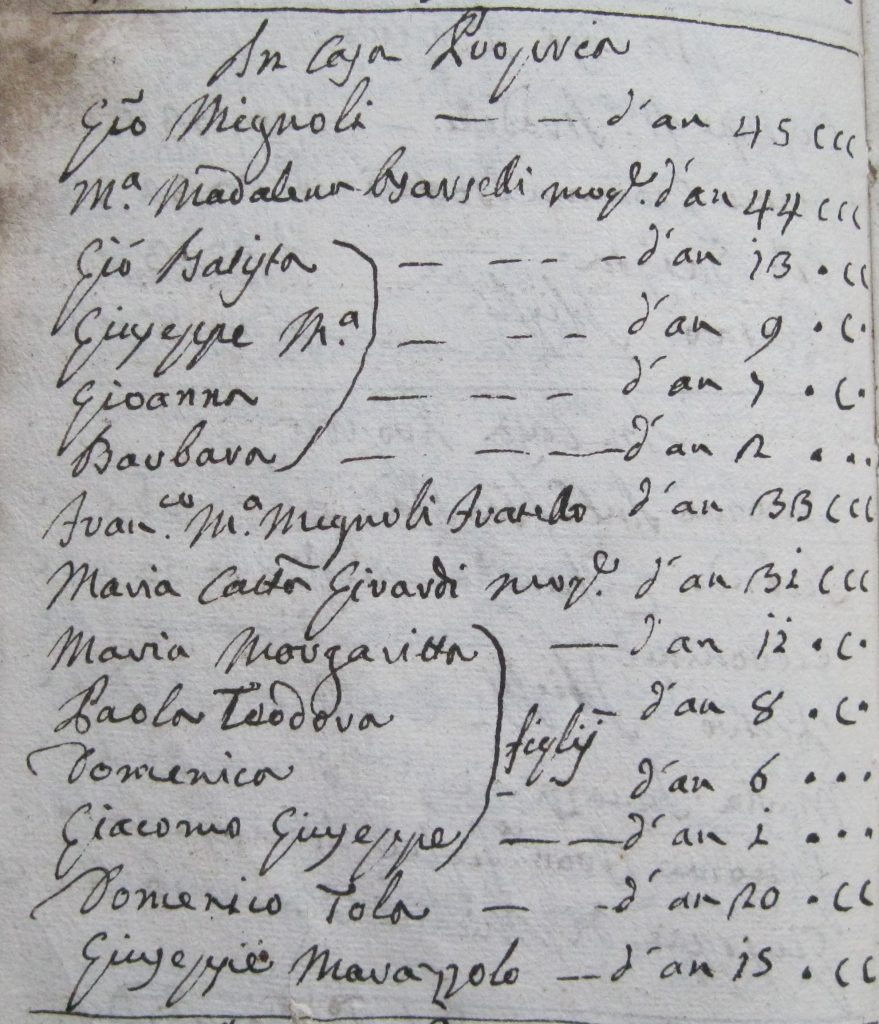 In Casa Propria
Gio Mignoli — — d'an 45 C C C
M.a Madalena Garselli mogl.e d'an 44 C C C
Gió Batista — — - - d'an 13 • C C
Giuseppe M.a — - - d'an 9 • C •
Gioanna — — — d'an 7 • C •
Barbara — — — d'an 2 • • •
Fran.co M.a Mignoli Fratello d'an 33 C C C
Maria Catta Girardi mogl.e d'an 31 C C C
Maria Morgaritta — d'an 12 • C •
Paola Teodora figlij d'an 8 • C •
Domenica - - d'an 6 • • •
Giacomo Giuseppe — — d'an 1 • • •
Domenico Tola — - d'an 20 • C C
Giuseppe Marazzolo — d'an 15 • C C